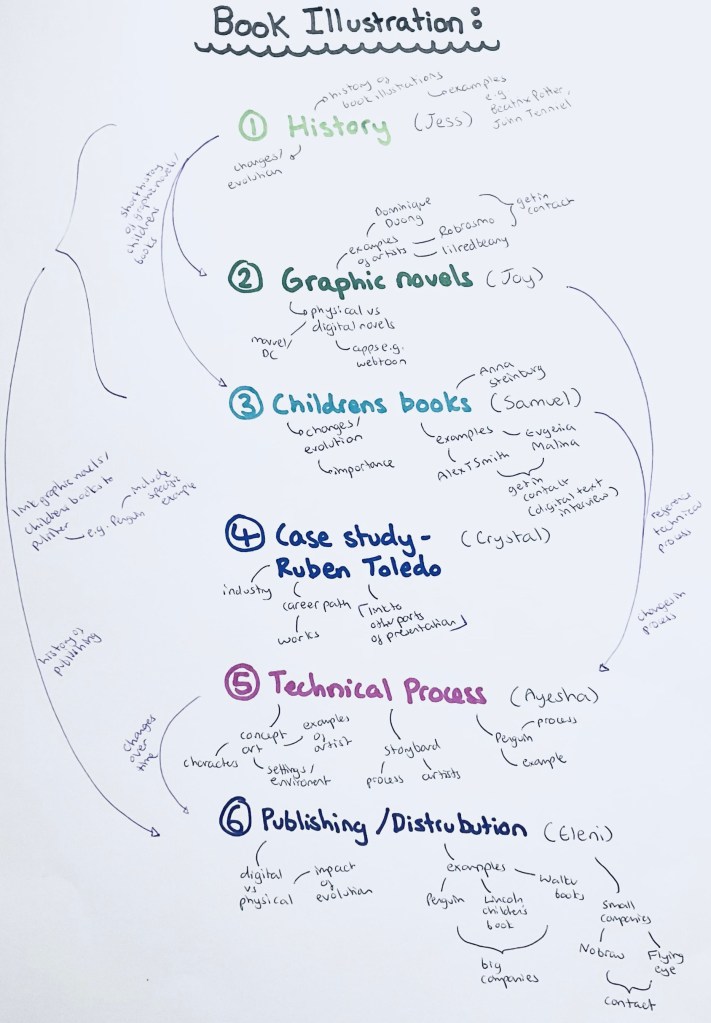 Book Illustration:
history of
book illustrations
examples
e.g
Beatrix Potter,
John Tenniel
① History (Jess)
changes/
evolution
short history
of graphic novels/
childrens
books
Dominique
Duong
getin
contact
examples
of artists
Robrosmo
lilredbeany
② Graphic novels (Joy)
physical vs
digital novels
marvel/
DC
apps e.g.
webtoon
Anna
steinburg
③ Childrens books (Samuel)
changes/
evolution
importance
examples
Evgenia
Malina
Alex T Smith
get in
contact
(digital text
interview)
link graphic novels/
childrens books to
e.g. Penguin
include
specific
example
④ Case study - (Crystal)
Ruben Toledo
industry
career path
works
link to
other parts
of presentation
reference
technical
process
changes in
process
history of
publishing
⑤ Technical Process (Ayesha)
concept
art
examples
of
artist
characters
settings/
storybard
process
artists
Penguin
process
example
Changes
over
time
⑥ Publishing /Distrubution (Eleni)
digital
vs
physical
impact
of
evolution
examples
Penguin
Lincoln
children's
book
books
big
companies
small
companies
Nobrow
Flying
eye
contact